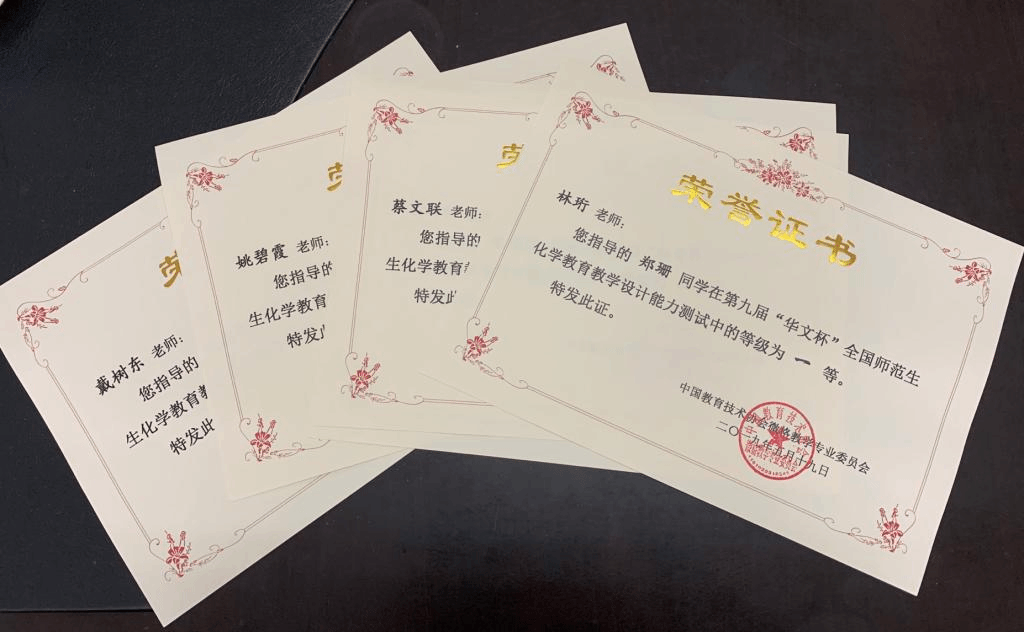 荣誉证书
林珩 老师：
您指导的 郑珊 同学在第九届“华文杯”全国师范生
化学教育教学设计能力测试中的等级为 一 等。
特发此证。
中国教育技术协会微格教学专业委员会
二〇一九年五月十九日
蔡文联 老师：
您指导的
生化学教育
特发此
姚碧霞 老师：
您指导的
生化学教育
特发
荣
戴树东 老师：
您指导的
生化学教育
特发此